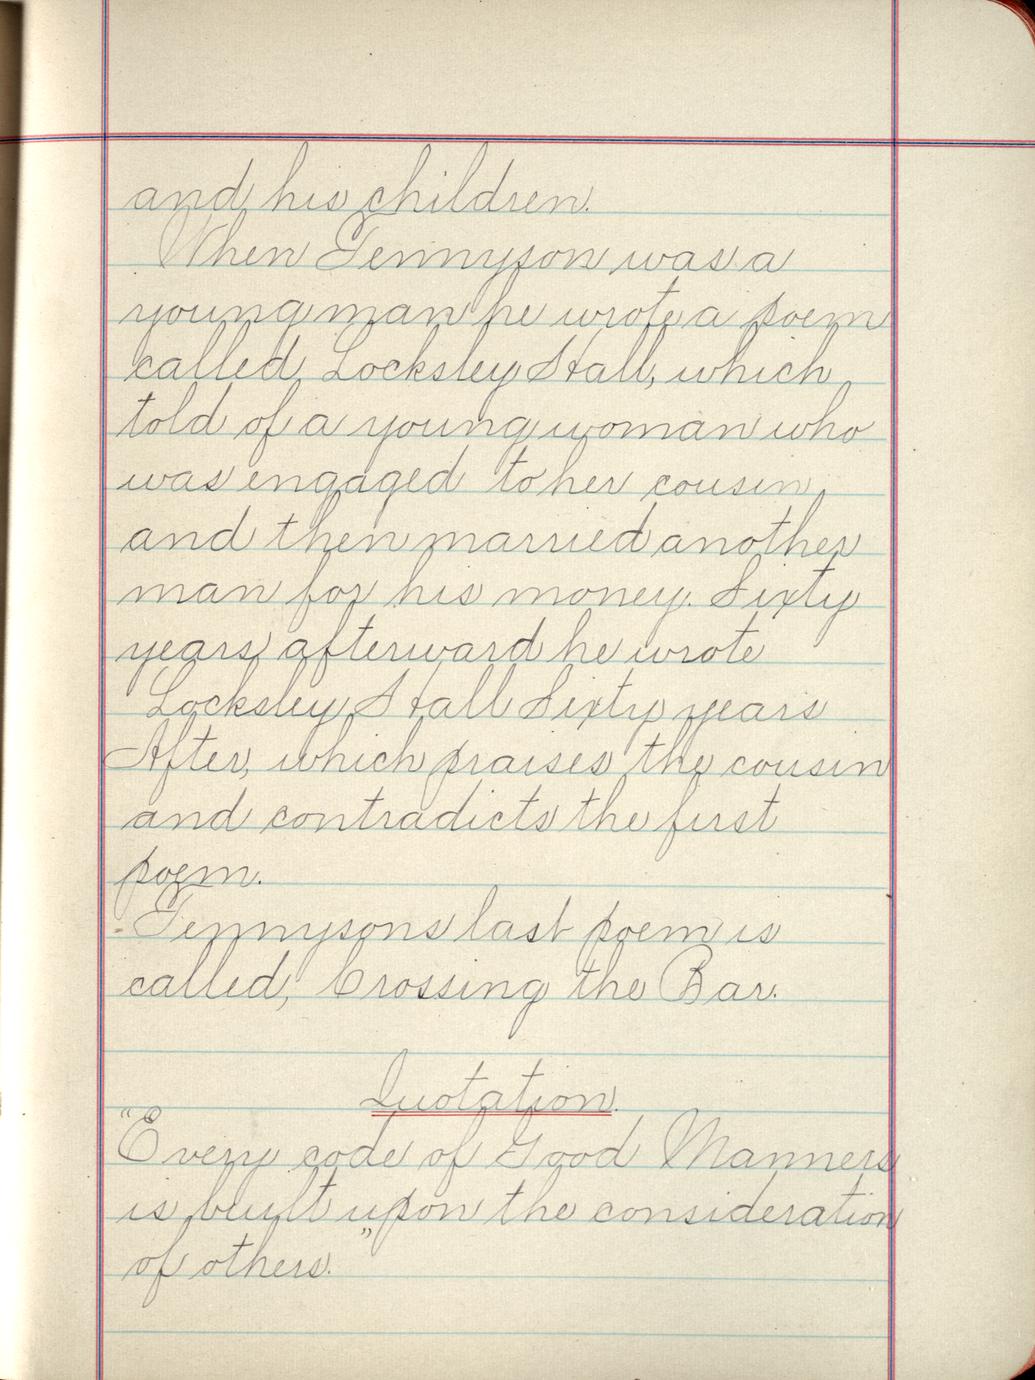 and his children.
When Tennyson was a
young man he wrote a poem
called Locksley Hall, which
told of a young woman who
was engaged to her cousin,
and then married another
man for his money. Sixty
years afterward he wrote
Locksley Hall Sixty years
After, which praises the cousin
and contradicts the first
poem.
Tennysons last poem is
called, Crossing the Bar.
Quotation.
"Every code of Good Manners
is built upon the consideration
of others."